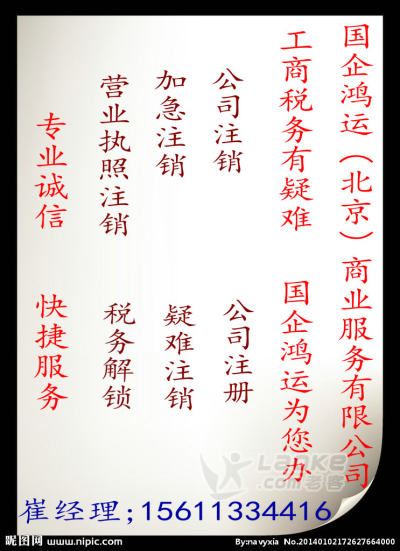 国企鸿运（北京）商业服务有限公司
工商税务有疑难
国企鸿运为您办
公司注销
公司注册
加急注销
疑难注销
营业执照注销
税务解锁
专业诚信
快捷服务
Lanke.com
老客
崔经理;15611334416
昵图网 www.nipic.com
By:navyxia No.20140102172627664000